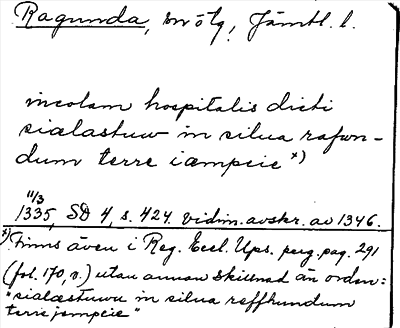 Ragunda, sn o tg, Jämtl. l.
incolam hospitalis dicti
sialastuw in silua rafwn-
dum terre iæmpcie x)
11/3
1335, SD 4, s. 424. vidim. avskr. av 1346.
x) Finns även i Reg. Eccl. Ups. perg. pag. 291
(fol. 170, v.) utan annan skillnad än orden:
"sialæstuwu in silua reffhundum
terre jempcie"